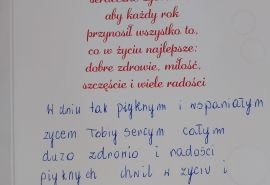 aby każdy rok
przynosił wszystko to,
co w życiu najlepsze:
dobre zdrowie, miłość,
szczęście i wiele radości
W dniu tak pięknym i wspaniałym
życzem Tobiy sercym całym
dużo zdrowio i radości
piyknych chwil w życiu i